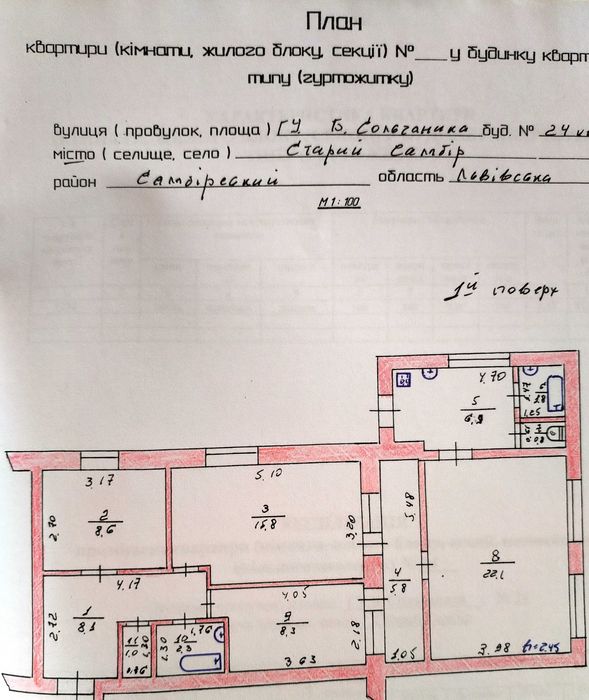 План
квартири (кімнати, жилого блоку, секції) №___ у будинку кварт
типу (гуртожитку)
вулиця ( провулок, площа ) буд. № 24
місто ( селище, село ) Старий Самбір
район Самбірський область Львівська
М 1:100
1й поверх
4.70
5
6.9
1.25
3.17
2
8.6
2.70
5.10
3
15.8
3.20
5.48
4
5.8
1.05
8
22.1
3.98
h=2.45
4.17
1
8.1
2.72
11
1.0
1.30
0.76
1.30
10
2.3
1.76
4.05
9
8.3
3.63
2.18